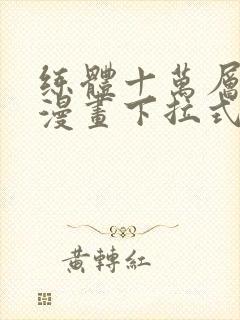 練體十萬層
漫畫下拉式
黃轉紅